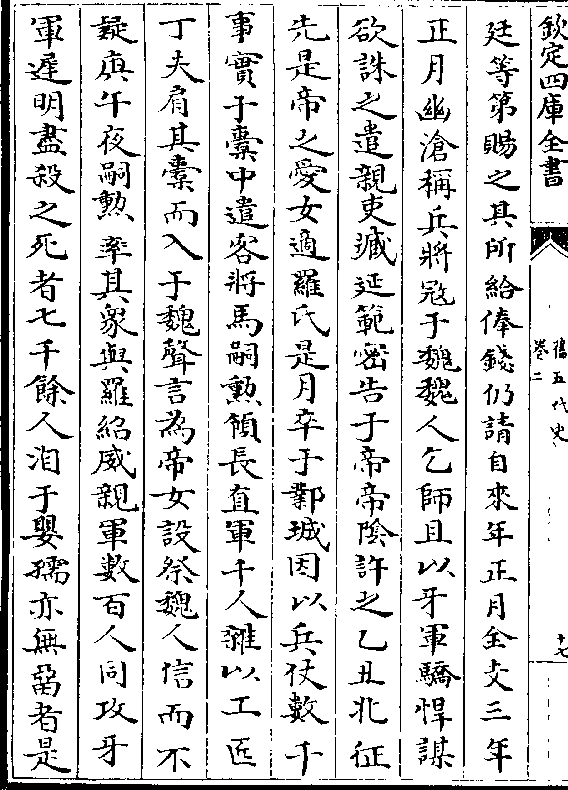 欽定四庫全書
舊五代史
卷二
十七
廷等第賜之其所給俸錢仍請自來年正月全支三年
正月幽滄稱兵將寇于魏魏人乞師且以牙軍驕悍謀
欲誅之遣親吏臧延範密告于帝帝陰許之乙丑北征
先是帝之愛女適羅氏是月卒于鄴城因以兵仗數千
事實于橐中遣客將馬嗣勲領長直軍千人雜以工匠
丁夫肩其橐而入于魏聲言為帝女設祭魏人信而不
疑庚午夜嗣勲率其衆與羅紹威親軍數百人同攻牙
軍遲明盡殺之死者七千餘人洎于嬰孺亦無留者是